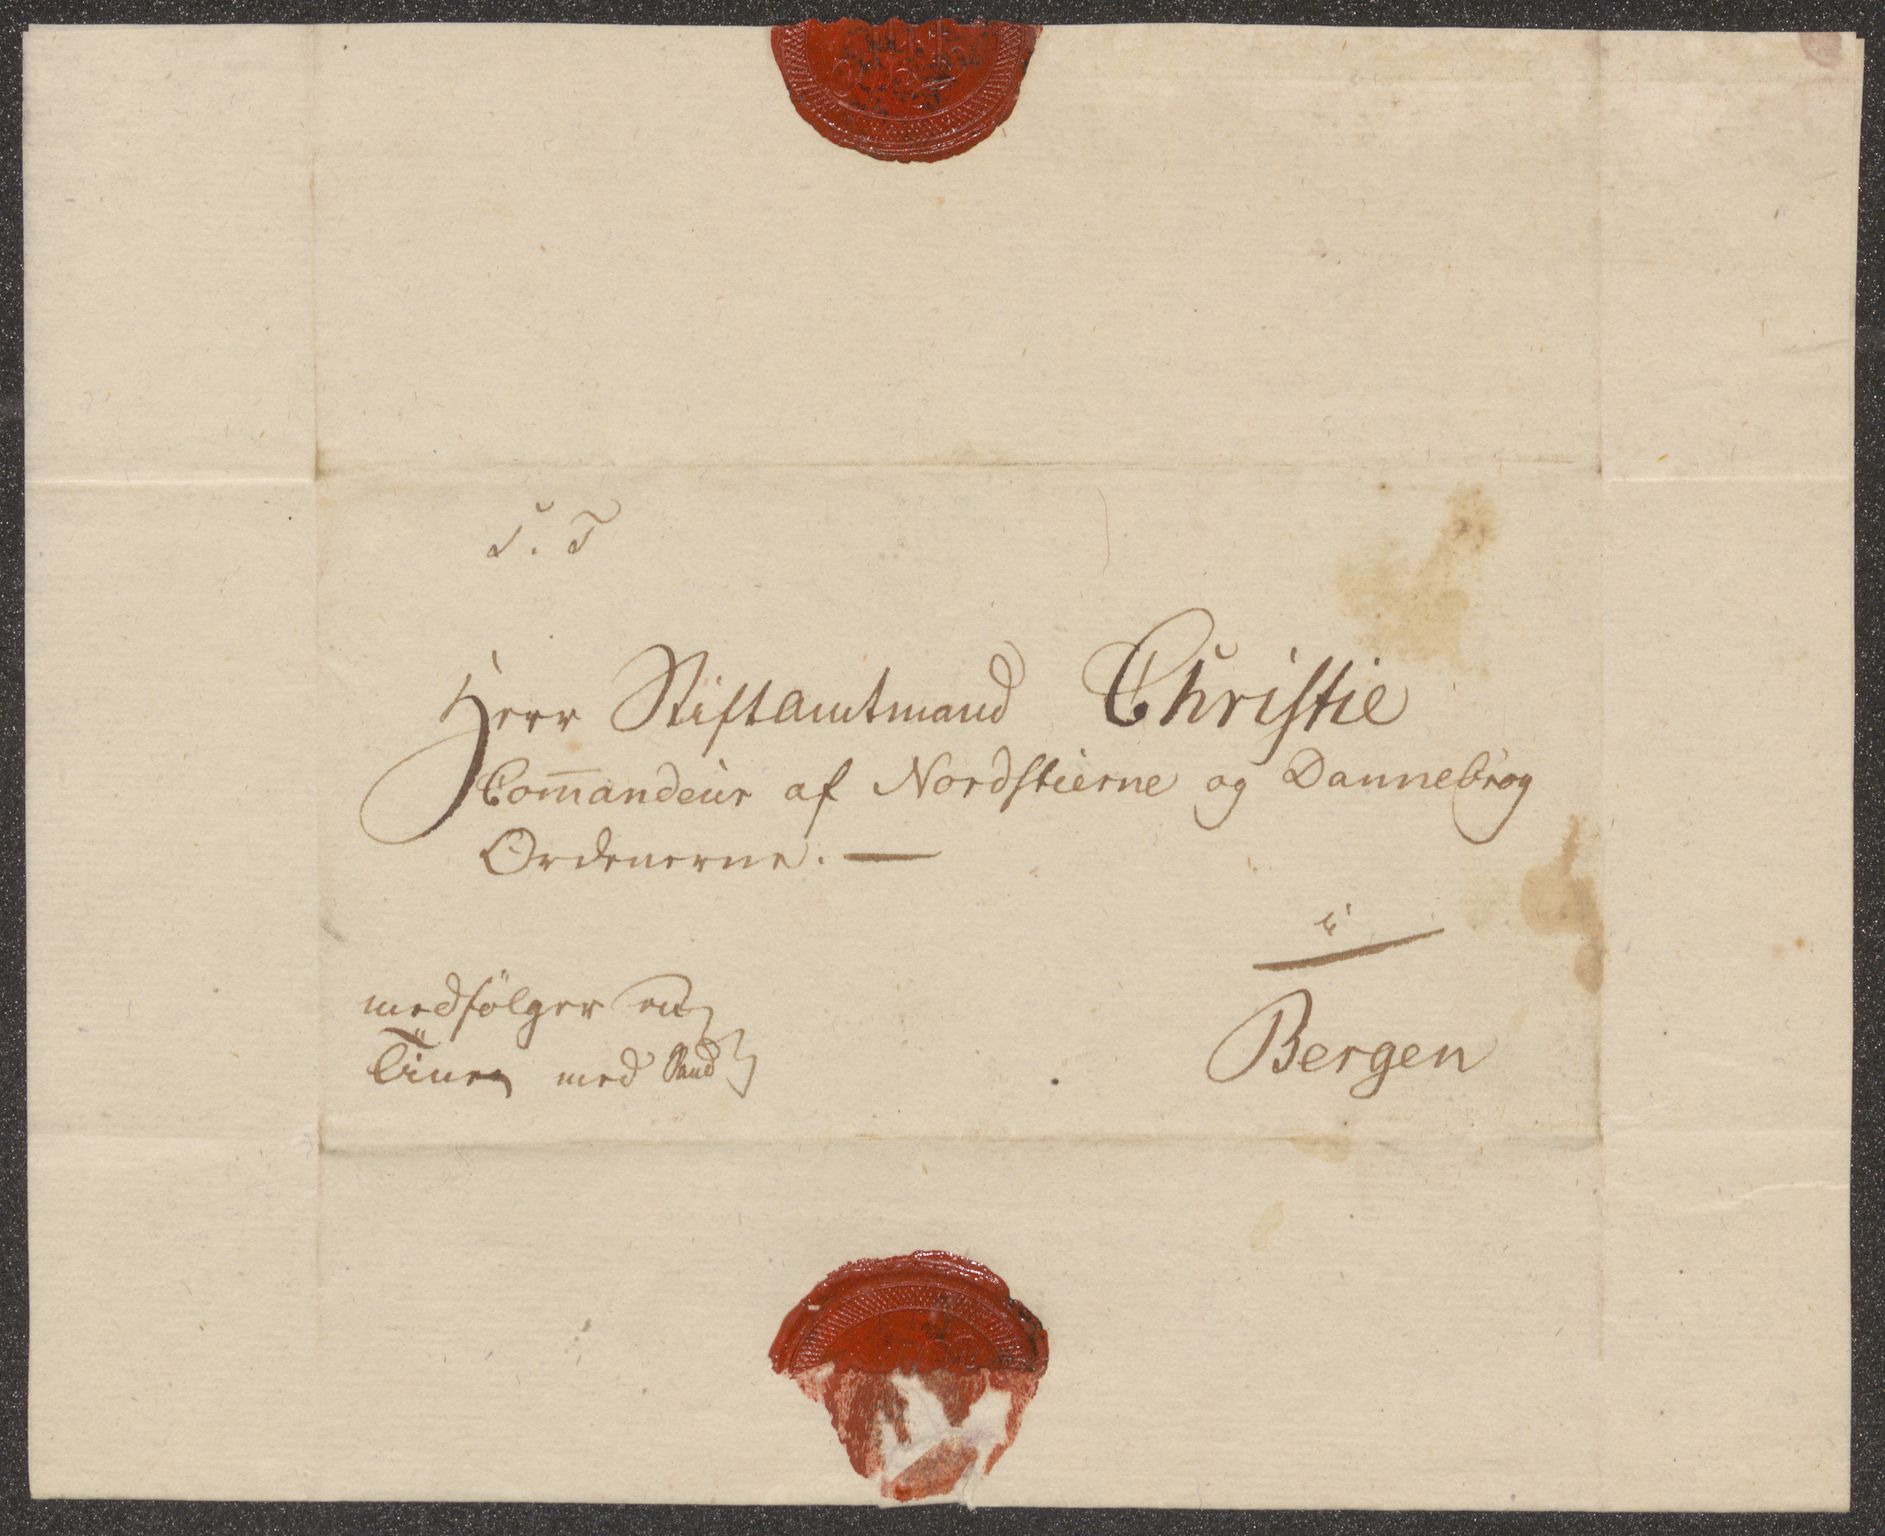 S. T
Herr Stiftamtmand Christie
Com̅andeur af Nordstierne og Dannebrog
Ordenerne. —
i
medfölger en
Tiine med Sand
Bergen